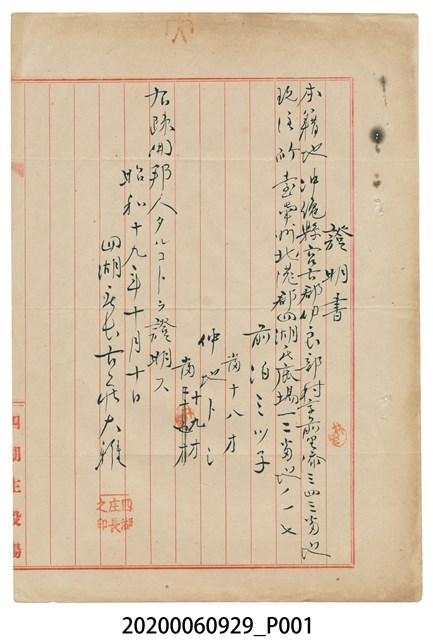 證明書
本籍地 沖縄縣宮古郡伊良部村字前里添三四三番地
現住所 臺南州北港郡四湖庄鹿場一二番地ノ一七
前泊ミツ子
當十八才
仲地トミ
當十九才
右疎開邦人タルコトヲ證明ス
昭和十九年十月十日
四湖庄長古庄大雅
四湖
庄長
之印
四湖庄役場
20200060929_P001